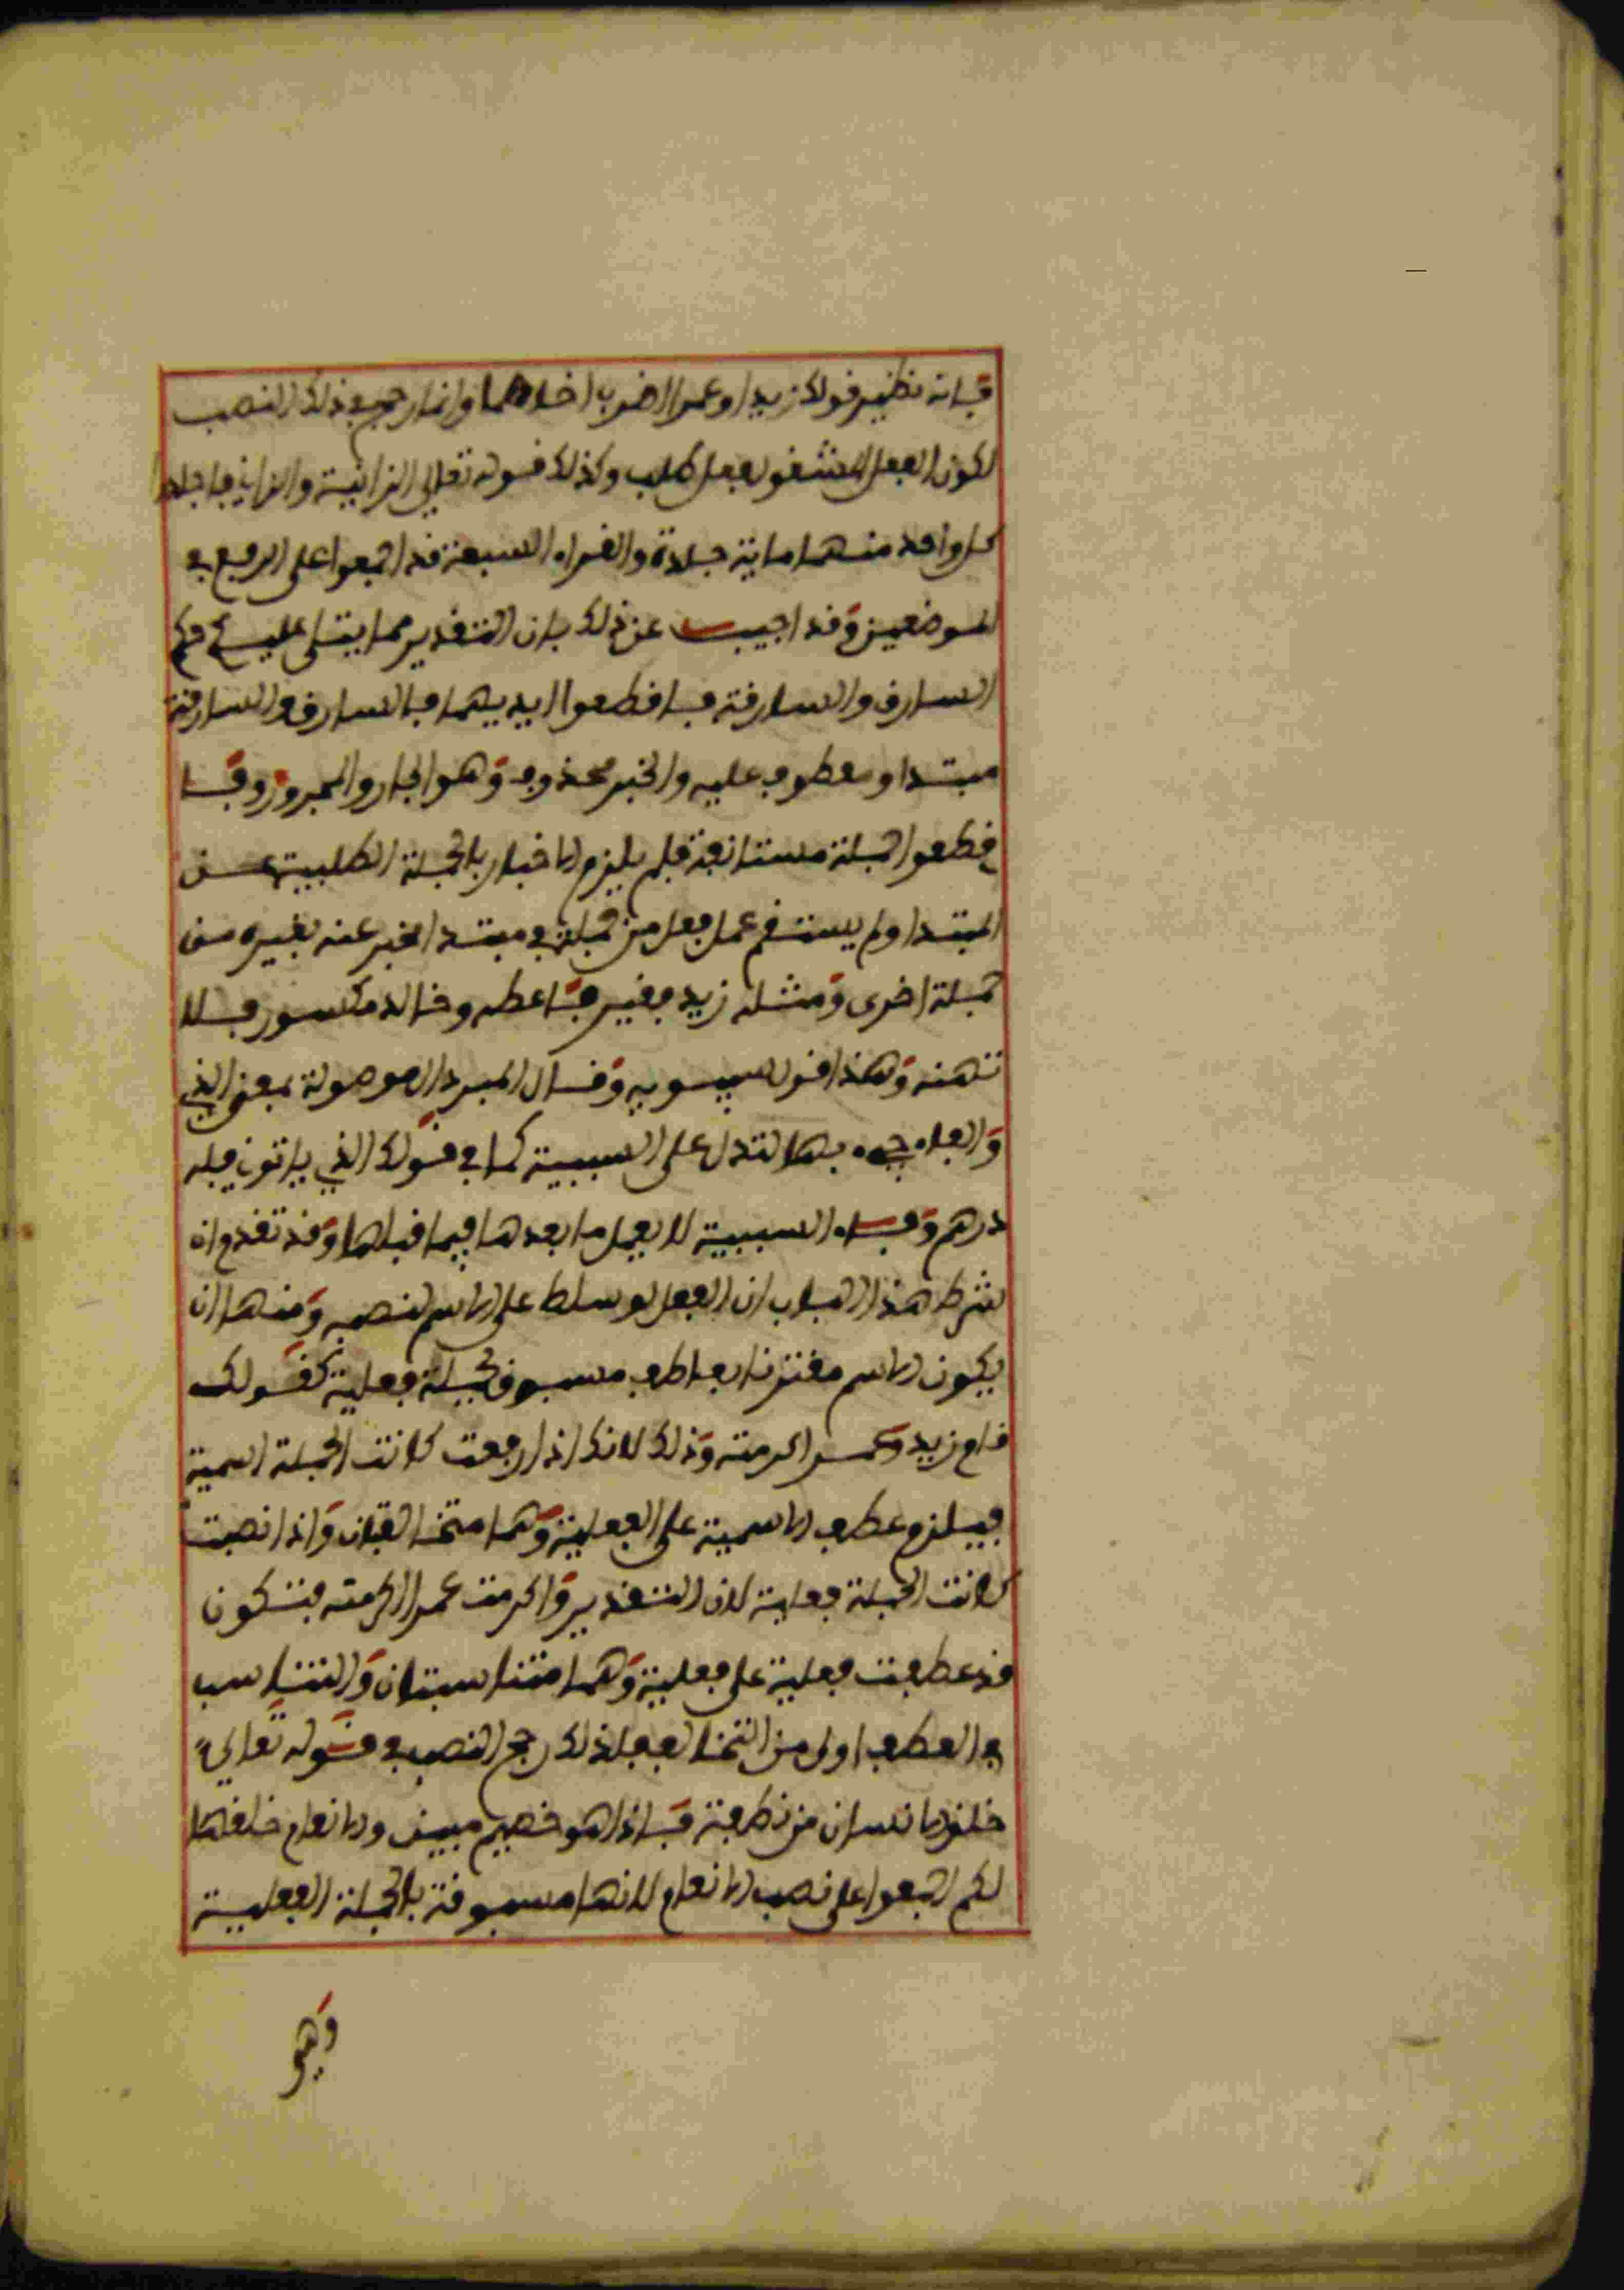 فانه نظير قولك زيدا وعمرا اضرب اخاهما وانما رجح في ذلك النصب
لكون الفعل المشغول فعل طلب وكذلك قوله تعالى الزانية والزاني فاجلدوا
كل واحد منهما ماية جلدة والقراء السبعة قد اجمعوا على الرفع في
الموضعين وقد اجيب عن ذلك بان التقدير مما يتلى عليكم حكم
السارق والسارقة فاقطعوا ايديهما فالسارق والسارقة
مبتدا ومعطوف عليه والخبر محذوف وهو الجار والمجرور وفا
قطعوا جملة مستانفة فلم يلزم الاخبار بالجملة الطلبية عن
المبتدا ولم يستقم عمل فعل من جملة في مبتدا مخبر عنه بغيره من
جملة اخرى ومثله زيد فقير فاعطه وخالد مكسور فلا
تهنه وهذا قول سيبويه وقال المبرد ال موصولة بمعنى الذي
والفاء جيء بها لتدل على السببية كما في قولك الذي ياتوني فله
درهم وفاء السببية لا يعمل ما بعدها فيما قبلها وقد تقدم ان
شرط هذا الباب ان الفعل لو سلط على الاسم لنصبه ومنها ان
يكون الاسم مقترنا بعاطف مسبوق بجملة فعلية كقولك
قام زيد وعمرا اكرمته وذلك لانك اذا رفعت كانت الجملة اسمية
فيلزم عطف الاسمية على الفعلية وهما متخالفتان واذا نصبت
كانت الجملة فعلية لان التقدير واكرمت عمرا اكرمته فتكون
قد عطفت فعلية على فعلية وهما متناسبتان والتناسب
في العطف اولى من التخالف فلذلك رجح النصب في قوله تعالى
خلق الانسان من نطفة فاذا هو خصيم مبين والانعام خلقها
لكم اجمعوا على نصب الانعام لانها مسبوقة بالجملة الفعلية
وهي